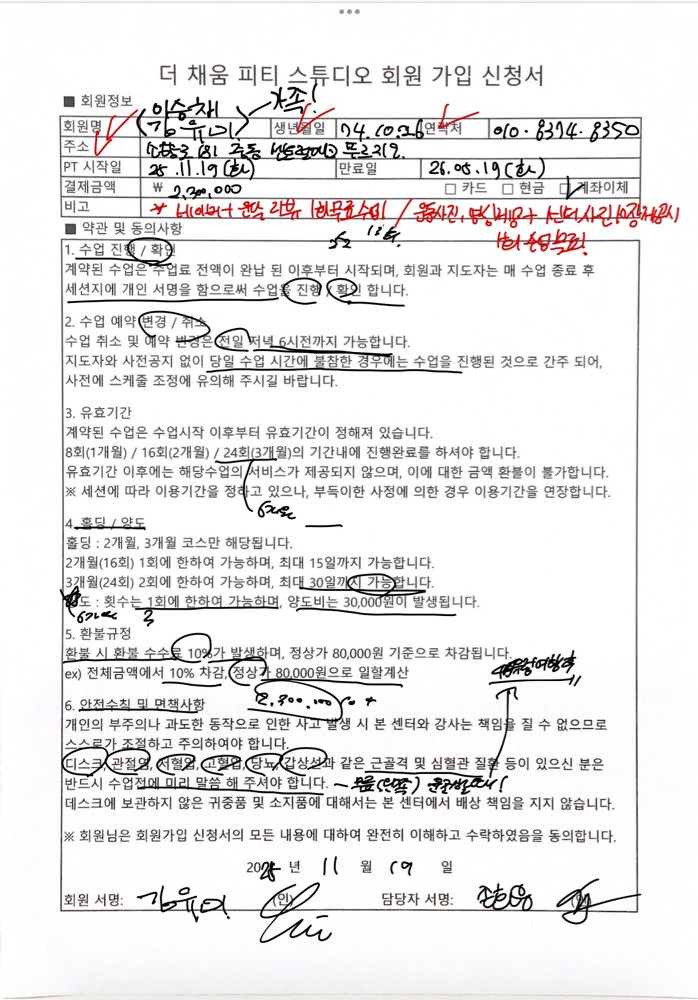 더 채움 피티 스튜디오 회원 가입 신청서
■ 회원정보
이승채
가족!
회원명 김유미 생년월일 74.10.26 연락처 010.8374.8350
주소
PT 시작일 25.11.19(화) 만료일 26.05.19(화)
결제금액 ₩ 2,300,000 □ 카드 □ 현금 □ 계좌이체
비고 * 네이버+ 리뷰 1회무료수업 /
■ 약관 및 동의사항
1. 수업 진행 / 확인
계약된 수업은 수업료 전액이 완납 된 이후부터 시작되며, 회원과 지도자는 매 수업 종료 후
세션지에 개인 서명을 함으로써 수업을 진행 / 확인 합니다.
2. 수업 예약 변경 / 취소
수업 취소 및 예약 변경은 전일 저녁 6시전까지 가능합니다.
지도자와 사전공지 없이 당일 수업 시간에 불참한 경우에는 수업을 진행된 것으로 간주 되어,
사전에 스케줄 조정에 유의해 주시길 바랍니다.
3. 유효기간
계약된 수업은 수업시작 이후부터 유효기간이 정해져 있습니다.
8회(1개월) / 16회(2개월) / 24회(3개월)의 기간내에 진행완료를 하셔야 합니다.
유효기간 이후에는 해당수업의 서비스가 제공되지 않으며, 이에 대한 금액 환불이 불가합니다.
※ 세션에 따라 이용기간을 정하고 있으나, 부득이한 사정에 의한 경우 이용기간을 연장합니다.
6개월
4. 홀딩 / 양도
홀딩 : 2개월, 3개월 코스만 해당됩니다.
2개월(16회) 1회에 한하여 가능하며, 최대 15일까지 가능합니다.
3개월(24회) 2회에 한하여 가능하며, 최대 30일까지 가능합니다.
양도 : 횟수는 1회에 한하여 가능하며, 양도비는 30,000원이 발생됩니다.
6개월 3
5. 환불규정
환불 시 환불 수수료 10%가 발생하며, 정상가 80,000원 기준으로 차감됩니다.
ex) 전체금액에서 10% 차감, 정상가 80,000원으로 일할계산
6. 안전수칙 및 면책사항
개인의 부주의나 과도한 동작으로 인한 사고 발생 시 본 센터와 강사는 책임을 질 수 없으므로
스스로가 조절하고 주의하여야 합니다.
디스크, 관절염, 저혈압, 고혈압, 당뇨, 갑상성과 같은 근골격 및 심혈관 질환 등이 있으신 분은
반드시 수업전에 미리 말씀 해 주셔야 합니다.
데스크에 보관하지 않은 귀중품 및 소지품에 대해서는 본 센터에서 배상 책임을 지지 않습니다.
※ 회원님은 회원가입 신청서의 모든 내용에 대하여 완전히 이해하고 수락하였음을 동의합니다.
2025 년 11 월 19 일
회원 서명: 김유미 (인) 담당자 서명: